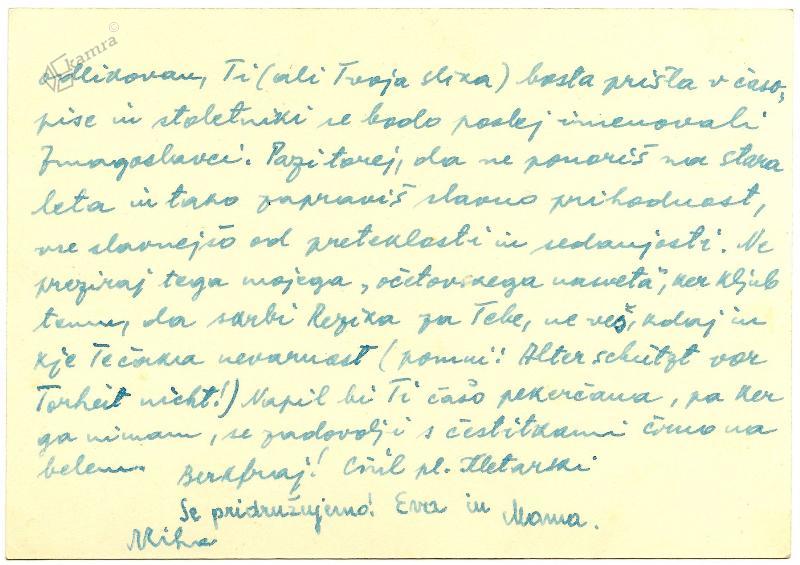 kamra ©
odlikovan, Ti (ali Tvoja slika) bosta prišla v časo-
pise in stoletniki se bodo poslej imenovali
Zmagoslavci. Pazi torej, da ne ponoriš na stara
leta in tako zapraviš slavno prihodnost,
vse slavnejšo od preteklosti in sedanjosti. Ne
preziraj tega mojega „očetovskega nasveta", ker kljub
temu, da skrbi Rezika za Tebe, ne veš, kdaj in
kje Te čaka nevarnost (pomni: Alter schützt vor
Torheit nicht!) Napil bi Ti čašo pekerčana, pa ker
ga nimam, se zadovolji s čestitkami črno na
belem.
Ciril pl. Kletarski
Se pridružujemo! Eva in Mama.
Miha